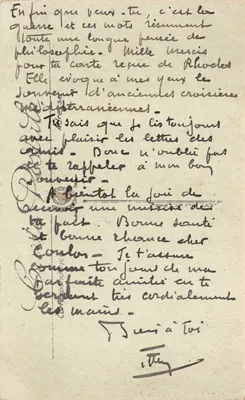 Enfin que veux-tu, c'est la
guerre et ces mots résument
toute une longue pensée de
philosophie. Mille mercis
pour ta carte reçue de Rhodes
Elle évoque à mes yeux le
souvenir d'anciennes croisières
méditerranéennes.
Tu sais que je lis toujours
avec plaisir les lettres des
amis. Donc n'oublie pas
de te rappeler à mon bon
souvenir.
A bientôt la joie de
recevoir une missive de
ta part. Bonne santé
et bonne chance cher
Je t'assure
comme toujours de ma
parfaite amitié en te
serrant très cordialement
les mains.
Bien à Toi